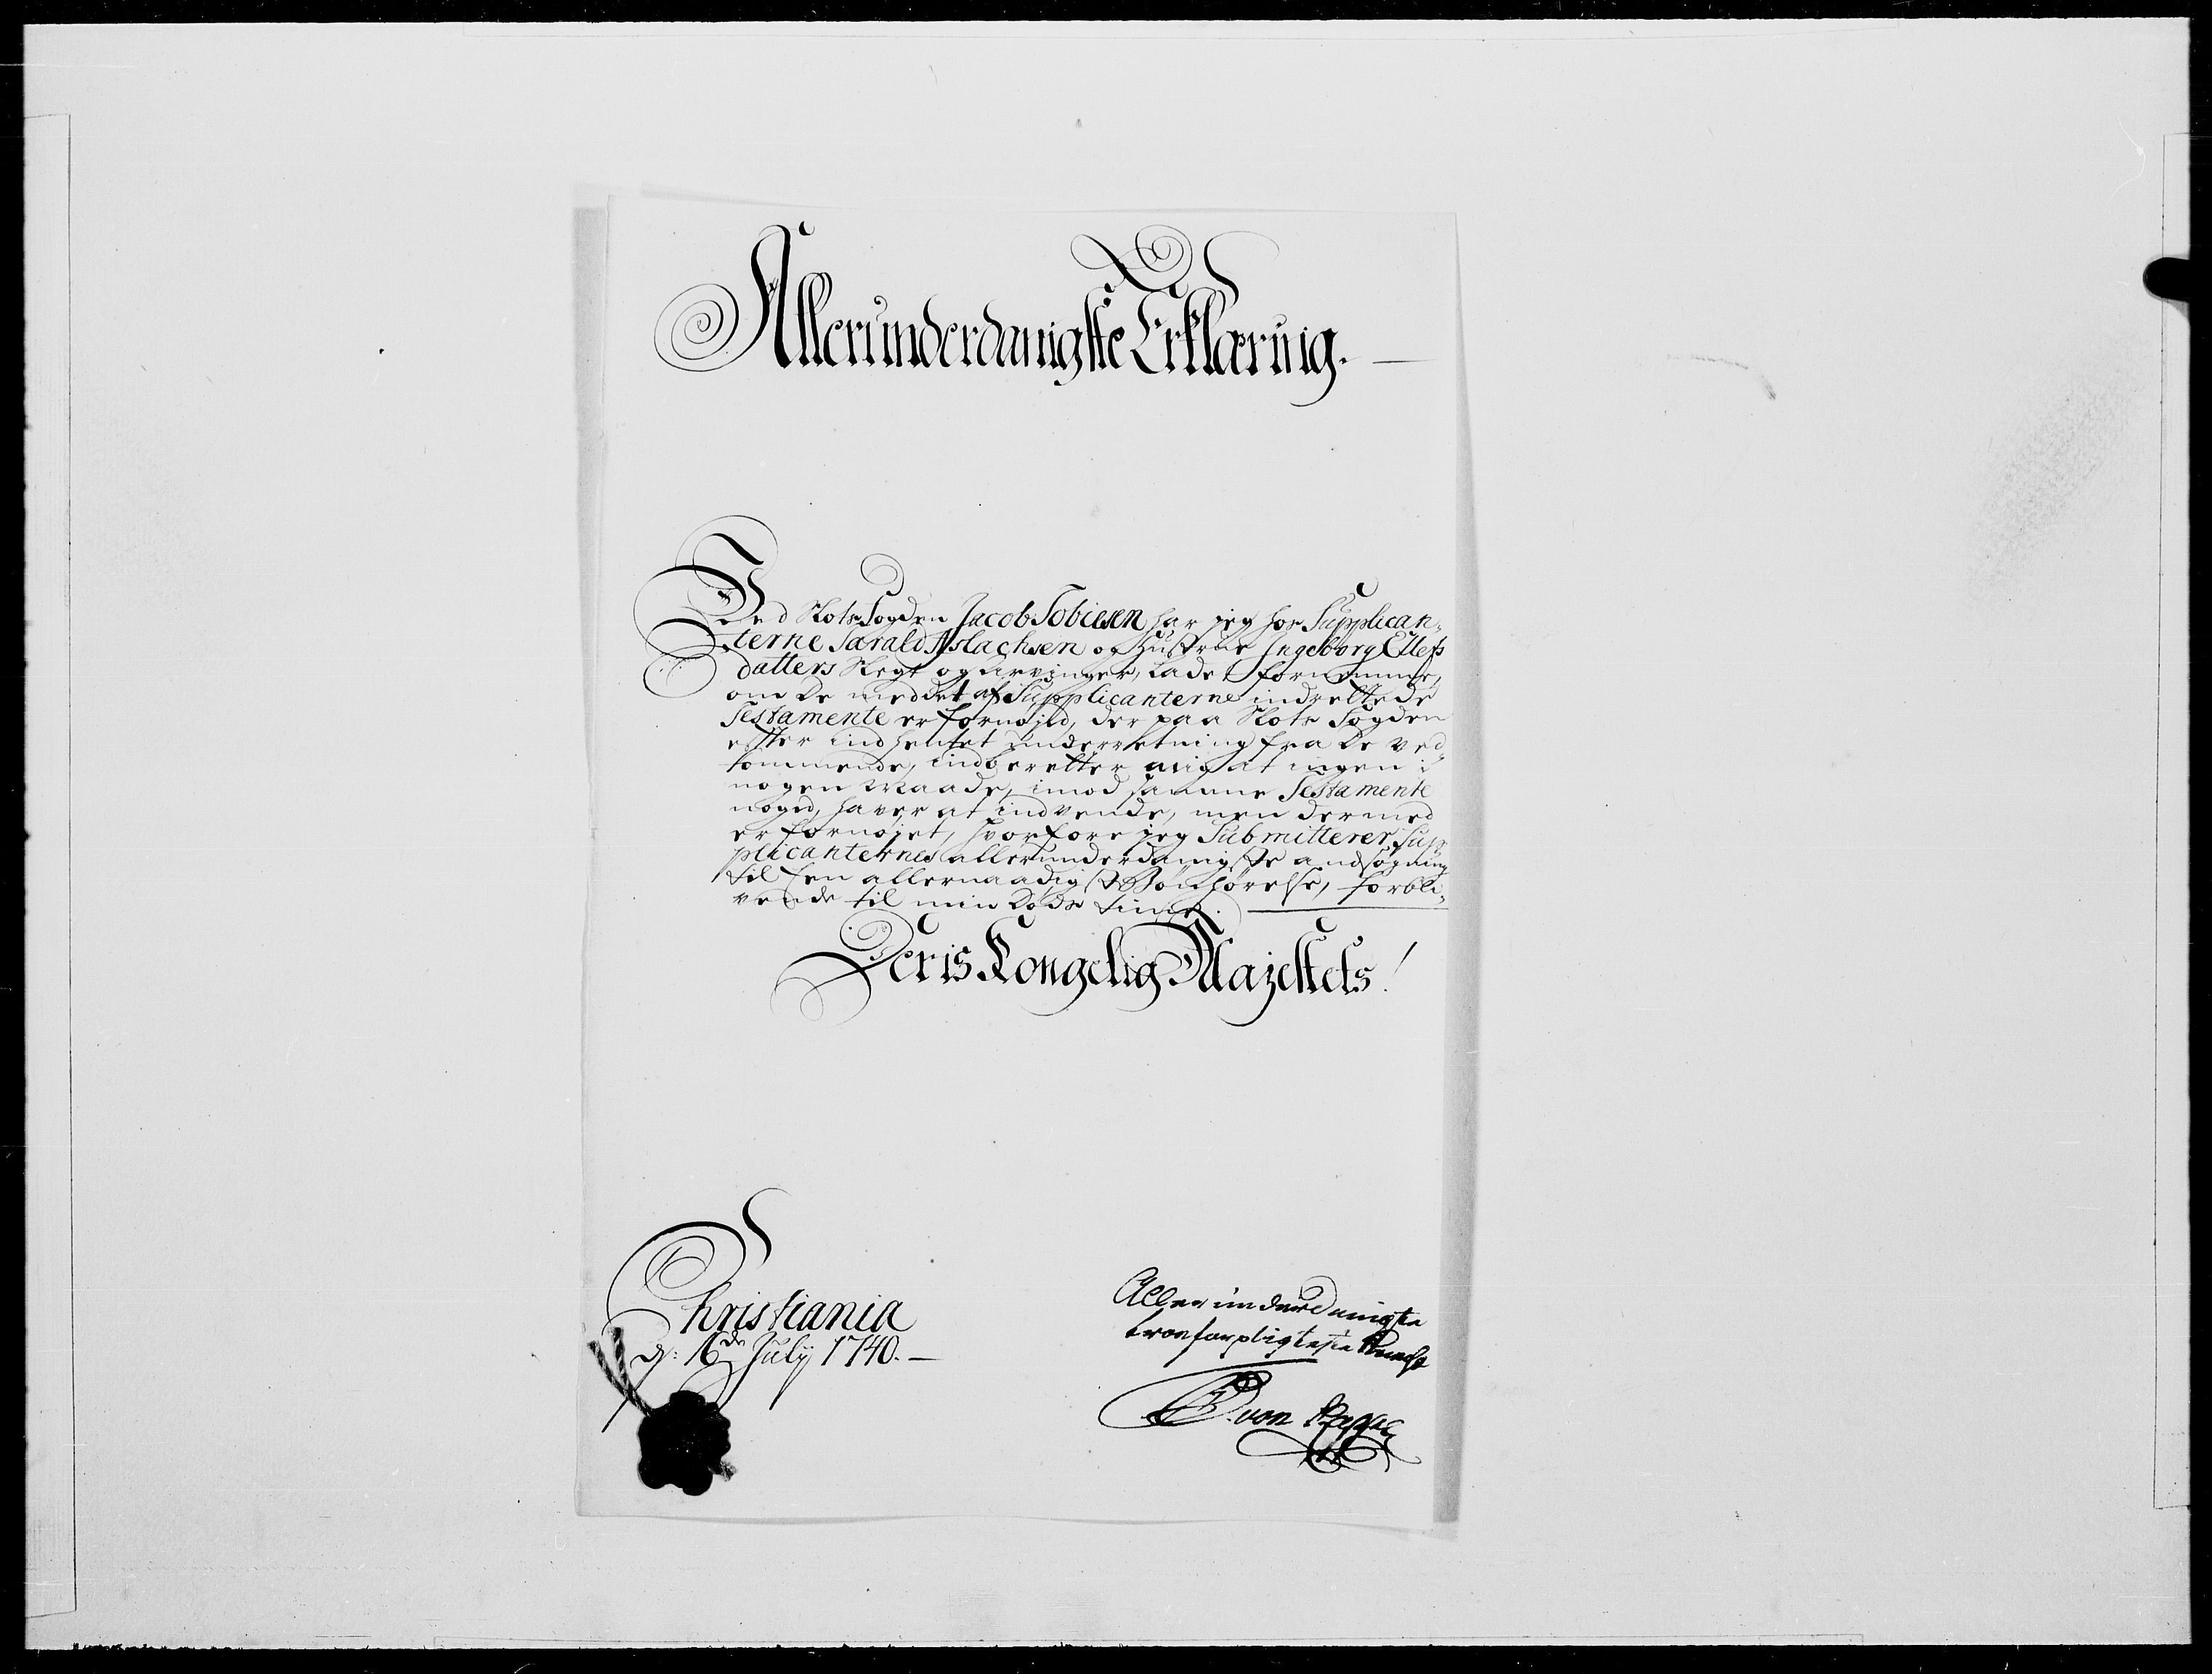 Allerunderdanigste Erklæring.
Ved Slots Fogden Jacob Tobiesen har jeg hos Supplican-
terne Tarald Aslachsen og Hustrue Ingeborg Ellefs
datters Slegt og Arvinger, ladet fornemme,
om de med det af Supplicanterne indrettede
Testamente er fornøjed, der paa Slots Fogden
efter indhentet underretning fra de ved-
kommende, indberetter mig at ingen i
nogen Maade, imod samme Testamente
noged, haver at indvende, men dermed
er fornøjet, hvorfore jeg Submitterer Sup
plicanternes allerunderdanigste andsøgning
til een allernaadigst Bønhørelse, forbli-
vende til min Døds time.
Deris Kongelig Majestets!
Christiania
d: 16de July 1740.
Allerunderdanigste
troeforpligteste Knecht
von